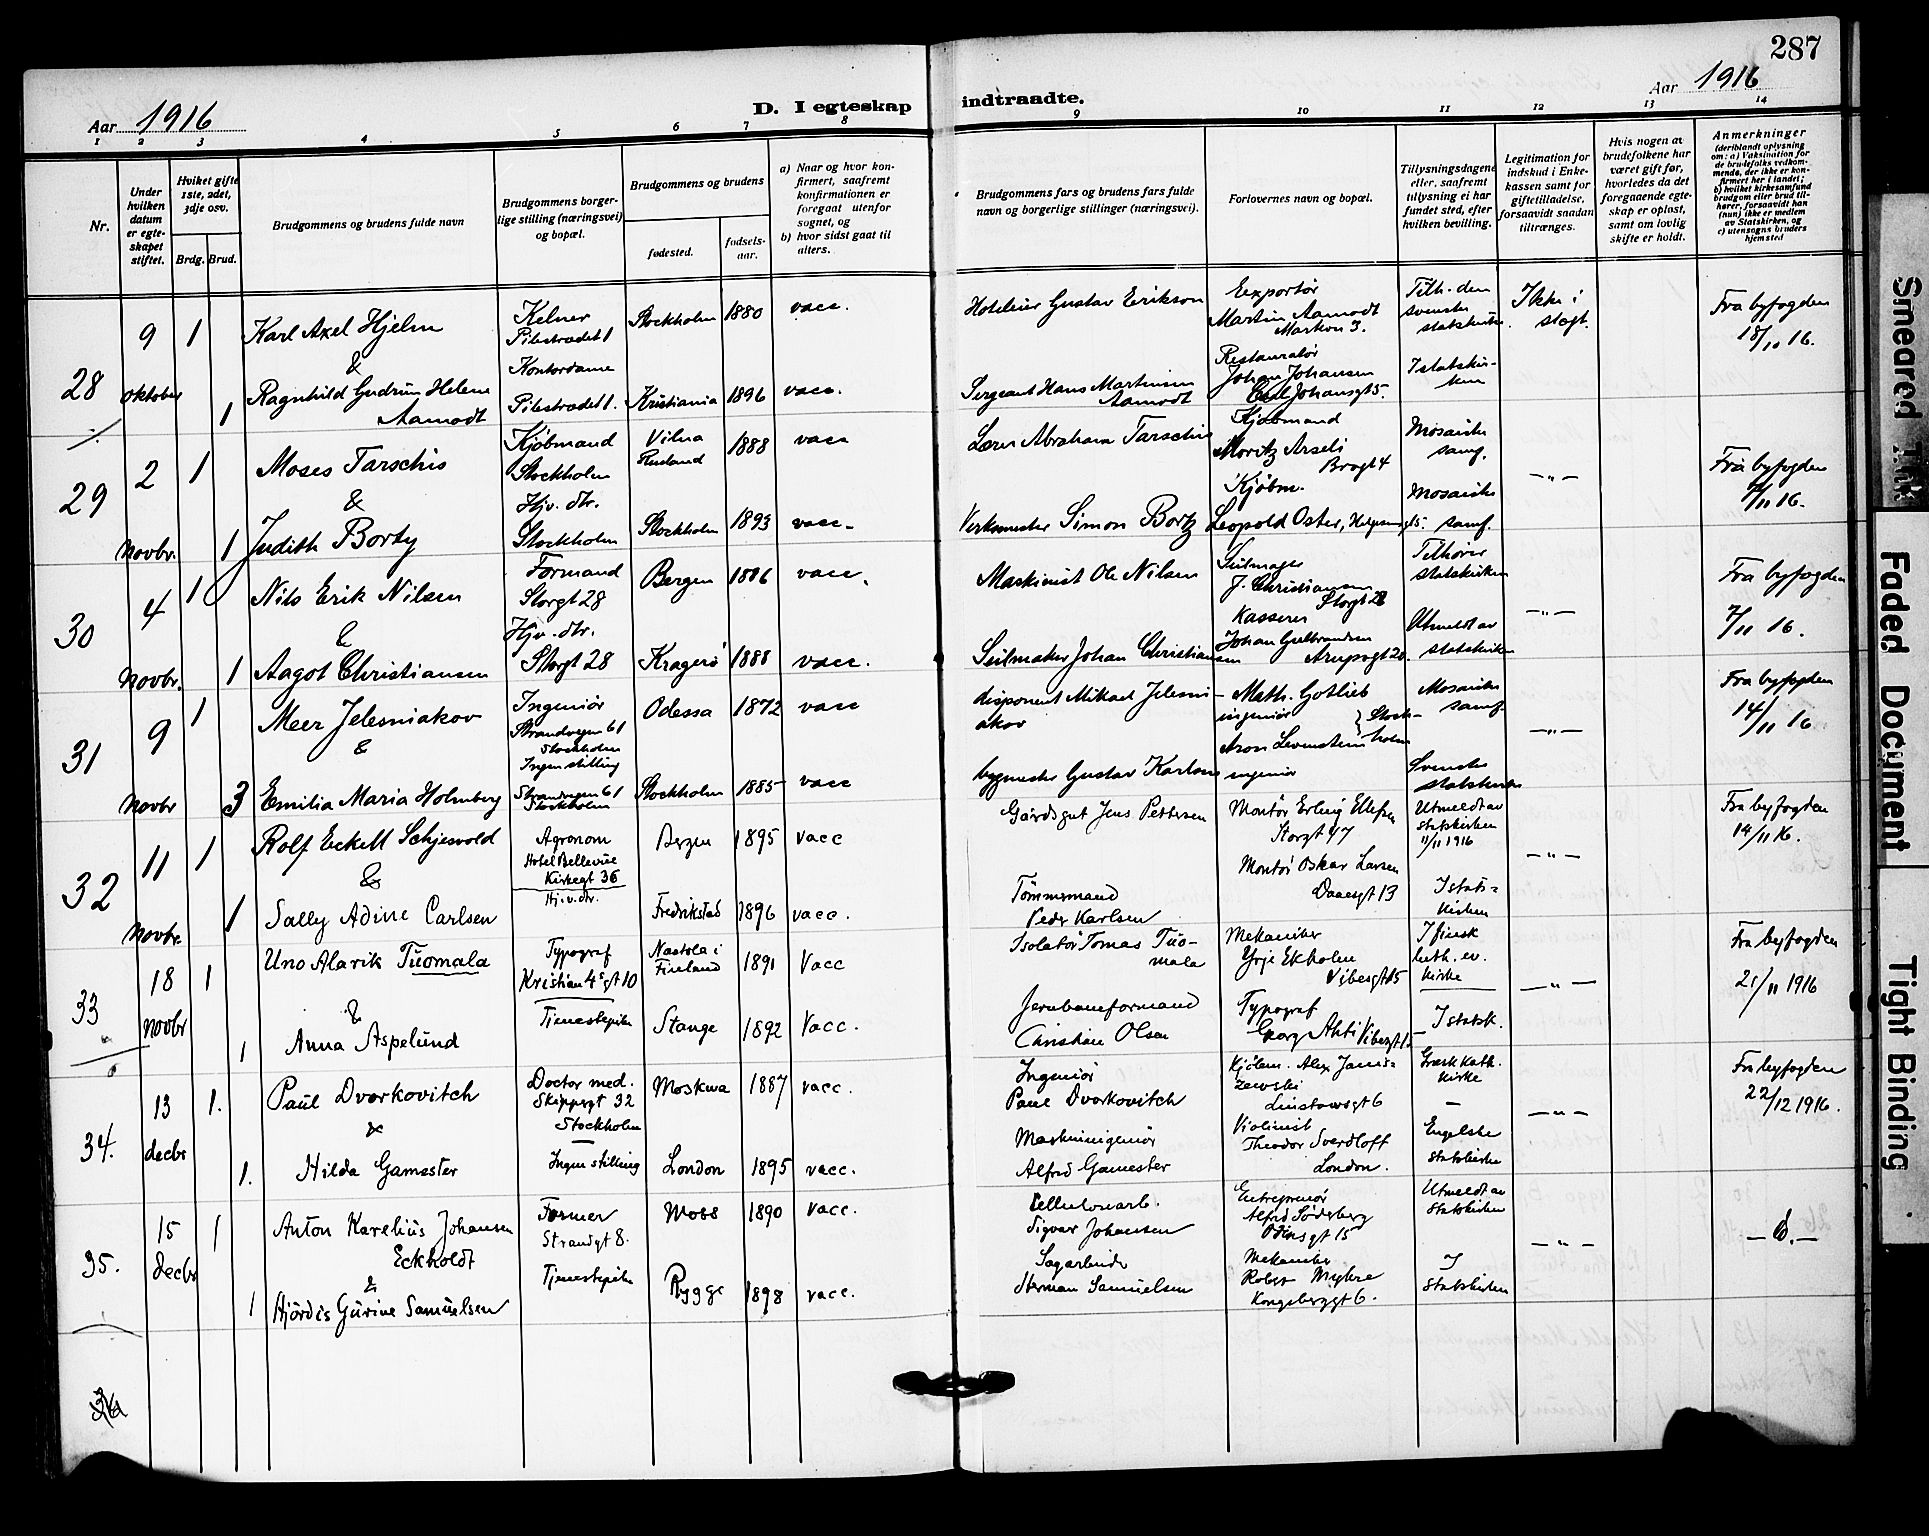 287
Aar 1916
D. I egteskap
indtraadte.
Aar 1916
1 2 3 4 5 6 7 8 9 10 11 12 13 14
Nr.
Under hvilken datum er egteskapet stiftet.
Hvilket gifte 1ste, 2det, 3dje osv.
Brdg. Brud.
Brudgommens og brudens fulde navn
Brudgommens borgerlige stilling (næringsvei) og bopæl.
Brudgommens og brudens
fødested.
fødselsaar.
a) Naar og hvor konfirmert, saafremt konfirmationen er foregaat utenfor sognet, og
b) hvor sidst gaat til alters.
Brudgommens fars og brudens fars fulde navn og borgerlige stillinger (næringsvei).
Forlovernes navn og bopæl.
Tillysningsdagene eller, saafremt tillysning ei har fundet sted, efter hvilken bevilling.
Legitimation for indskud i Enkekassen samt for giftetilladelse, forsaavidt saadan tiltrænges.
Hvis nogen av brudefolkene har været gift før, hvorledes da det foregaaende egteskap er opløst, samt om lovlig skifte er holdt.
Anmerkninger
(deriblandt oplysning om: a) Vaksination for de brudefolks vedkommende, der ikke er konfirmert her i landet;
b) hvilket kirkesamfund brudgom eller brud tilhører, forsaavidt han (hun) ikke er medlem av Statskirken, og
c) utensogns bruders hjemsted
28
9 oktober
1
Karl Axel Hjelm
&
1
Ragnhild Gudrun Helene
Aamodt
Kelner
Pilestrædet 1
Kontordame
Pilestrædet 1.
Stockholm 1880 vacc.
Kristiania 1896 vacc.
Hoteleier Gustav Erikson
Sergeant Hans Martinsen
Aamodt
Exportør
Martin Aamodt
Markvn 3.
Restauratør
Johan Johansen
Carl Johansgt 5.
Tilh. den
svenske
statskirke
I statskirken
Ikke i
slegt.
Fra byfogden
18/10 16.
29
2 Novbr.
1
Moses Tarschis
&
1
Judith Borty
Kjøbmand
Stockholm
Hjv. dtr.
Stockholm
Vilna
Rusland
1888 vacc
Stockholm 1893 vacc.
Lærer Abraham Tarschis
Verksmester Simon Bortz
Kjøbmand
Moritz Arseli
Brogt 4
Kjøbm.
Leopold Oster,
Mosaiske
samf.
Mosaiske
samf.
— " —
Fra byfogden
16.
30
4 Novbr.
1
Nils Erik Nilsen
&
1
Aagot Christiansen
Formand
Storgt 28
Hjv. dtr.
Storgt 28
Bergen 1886 vacc.
Kragerø 1888 vacc.
Maskinist Ole Nilsen
Seilmaker Johan Christiansen
Seilmager
J. Christiansen
Storgt 28
Kasserer
Johan Gulbrandsen
Arupsgt 20.
Tilhører
statskirken
Utmeldt av
statskirken
— " —
Fra byfogden
7/11 16.
31
9 Novbr
1
Meer Jelesniakov
&
3
Emilia Maria Holmberg
Ingeniør
Strandvegen 61
Stockholm
Ingen stilling
Strandvegen 61
Stockholm
Odessa 1872 vacc
Stockholm 1885 vacc
disponent Mikael Jelesniakov
bygmester Gustav Karlson
Math. Gotlieb
ingeniør
Stockholm
Aron Levenstein
ingeniør
Mosaiske
samf.
Svenske
statskirke
— " —
Fra byfogden
14/11 16.
32
11 Novbr.
1
Rolf Eckell Schjesvold
&
1
Sally Adine Carlsen
Agronom
Hotel Bellevue
Kirkegt 36
Hj.v. dtr.
Bergen 1895 vacc
Fredrikstad 1896 vacc.
Gårdsgut Jens Pettersen
Tømmermand
Peder Karlsen
Montør Erling Ellefsen
Storgt 47
Montør Oskar Larsen
Daaesgt 13
Utmeldt av
statskirken
11/11 1916
I statskirken
— " —
Fra byfogden
14/11 16.
33
18 Novbr
1
Uno Alarik Tuomala
&
1
Anna Aspelund
Typograf
Kristian 4's gt 10
Tjenestepike
Nastola i
Finland
1891 Vacc
Stange 1892 Vacc.
Isolatør Tomas Tuomala
Jernbaneformand
Christian Olsen
Mekaniker
Yrje Ekholm
Vibesgt 15
Typograf
Georg Ahti
I finsk
luth. ev.
kirke
I statsk.
— " —
Fra byfogden
21/11 1916
34.
13 decbr
1.
Paul Dvorkovitch
&
1.
Hilda Gamester
Doctor med.
Skippergt 32
Stockholm
Ingen stilling
Moskwa 1887 vacc.
London 1895 vacc.
Ingeniør
Paul Dvorkovitch
Maskiningeniør
Alfred Gamester
Kjøbm. Alex Janiszewski
Linstowsgt 6
Violinist
Theodor Sverdloff
London.
Græsk kath.
kirke
—
Engelske
statskirke
— " —
Fra byfogden
22/12 1916.
35.
15 Decbr
1
Anton Karelius Johansen
Eckholdt
&
1
Hjördis Gurine Samuelsen
Former
Strandgt 8.
Tjenestepike
Moss 1890 vacc.
Rygge 1898 vacc.
Cellulosearb.
Sigvar Johansen
Sagarbeider
Herman Samuelsen
Entreprenør
Alfred Söderberg
Odinsgt 15
Mekaniker
Robert Myhre
Kongsberggt 6.
Utmeldt av
statskirken
I
statskirken
— " —
— d. —
36
Smeared Ink
Faded Document
Tight Binding